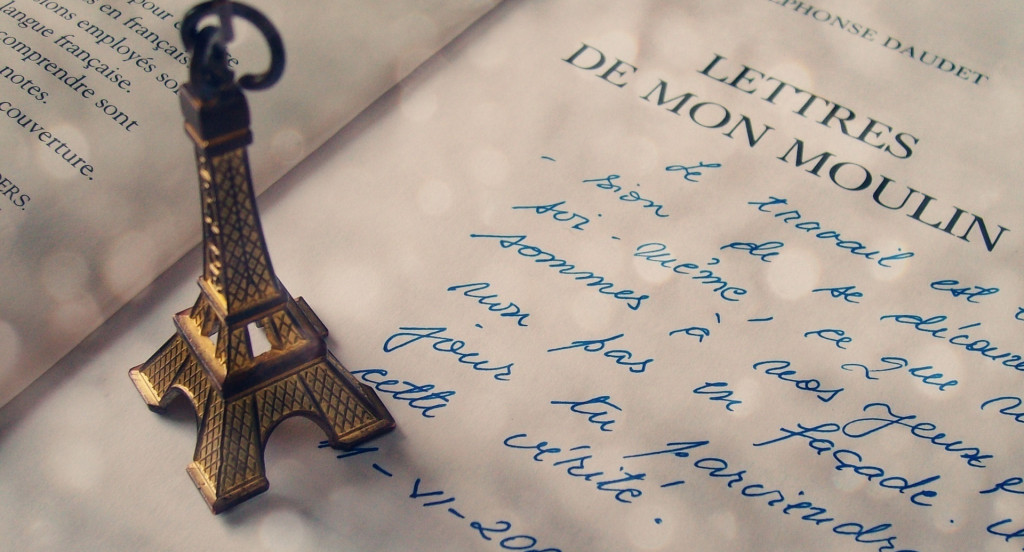 pour
en français
ions employés so
langue française.
comprendre sont
notes.
couverture.
DERS.
ALPHONSE DAUDET
LETTRES
DE MON MOULIN
- Le travail est
sion de se découvr
soi-même, ce que
sommes à nos yeux
non pas en façade.
jour tu parviendr
cette vérité.
11-VI-200